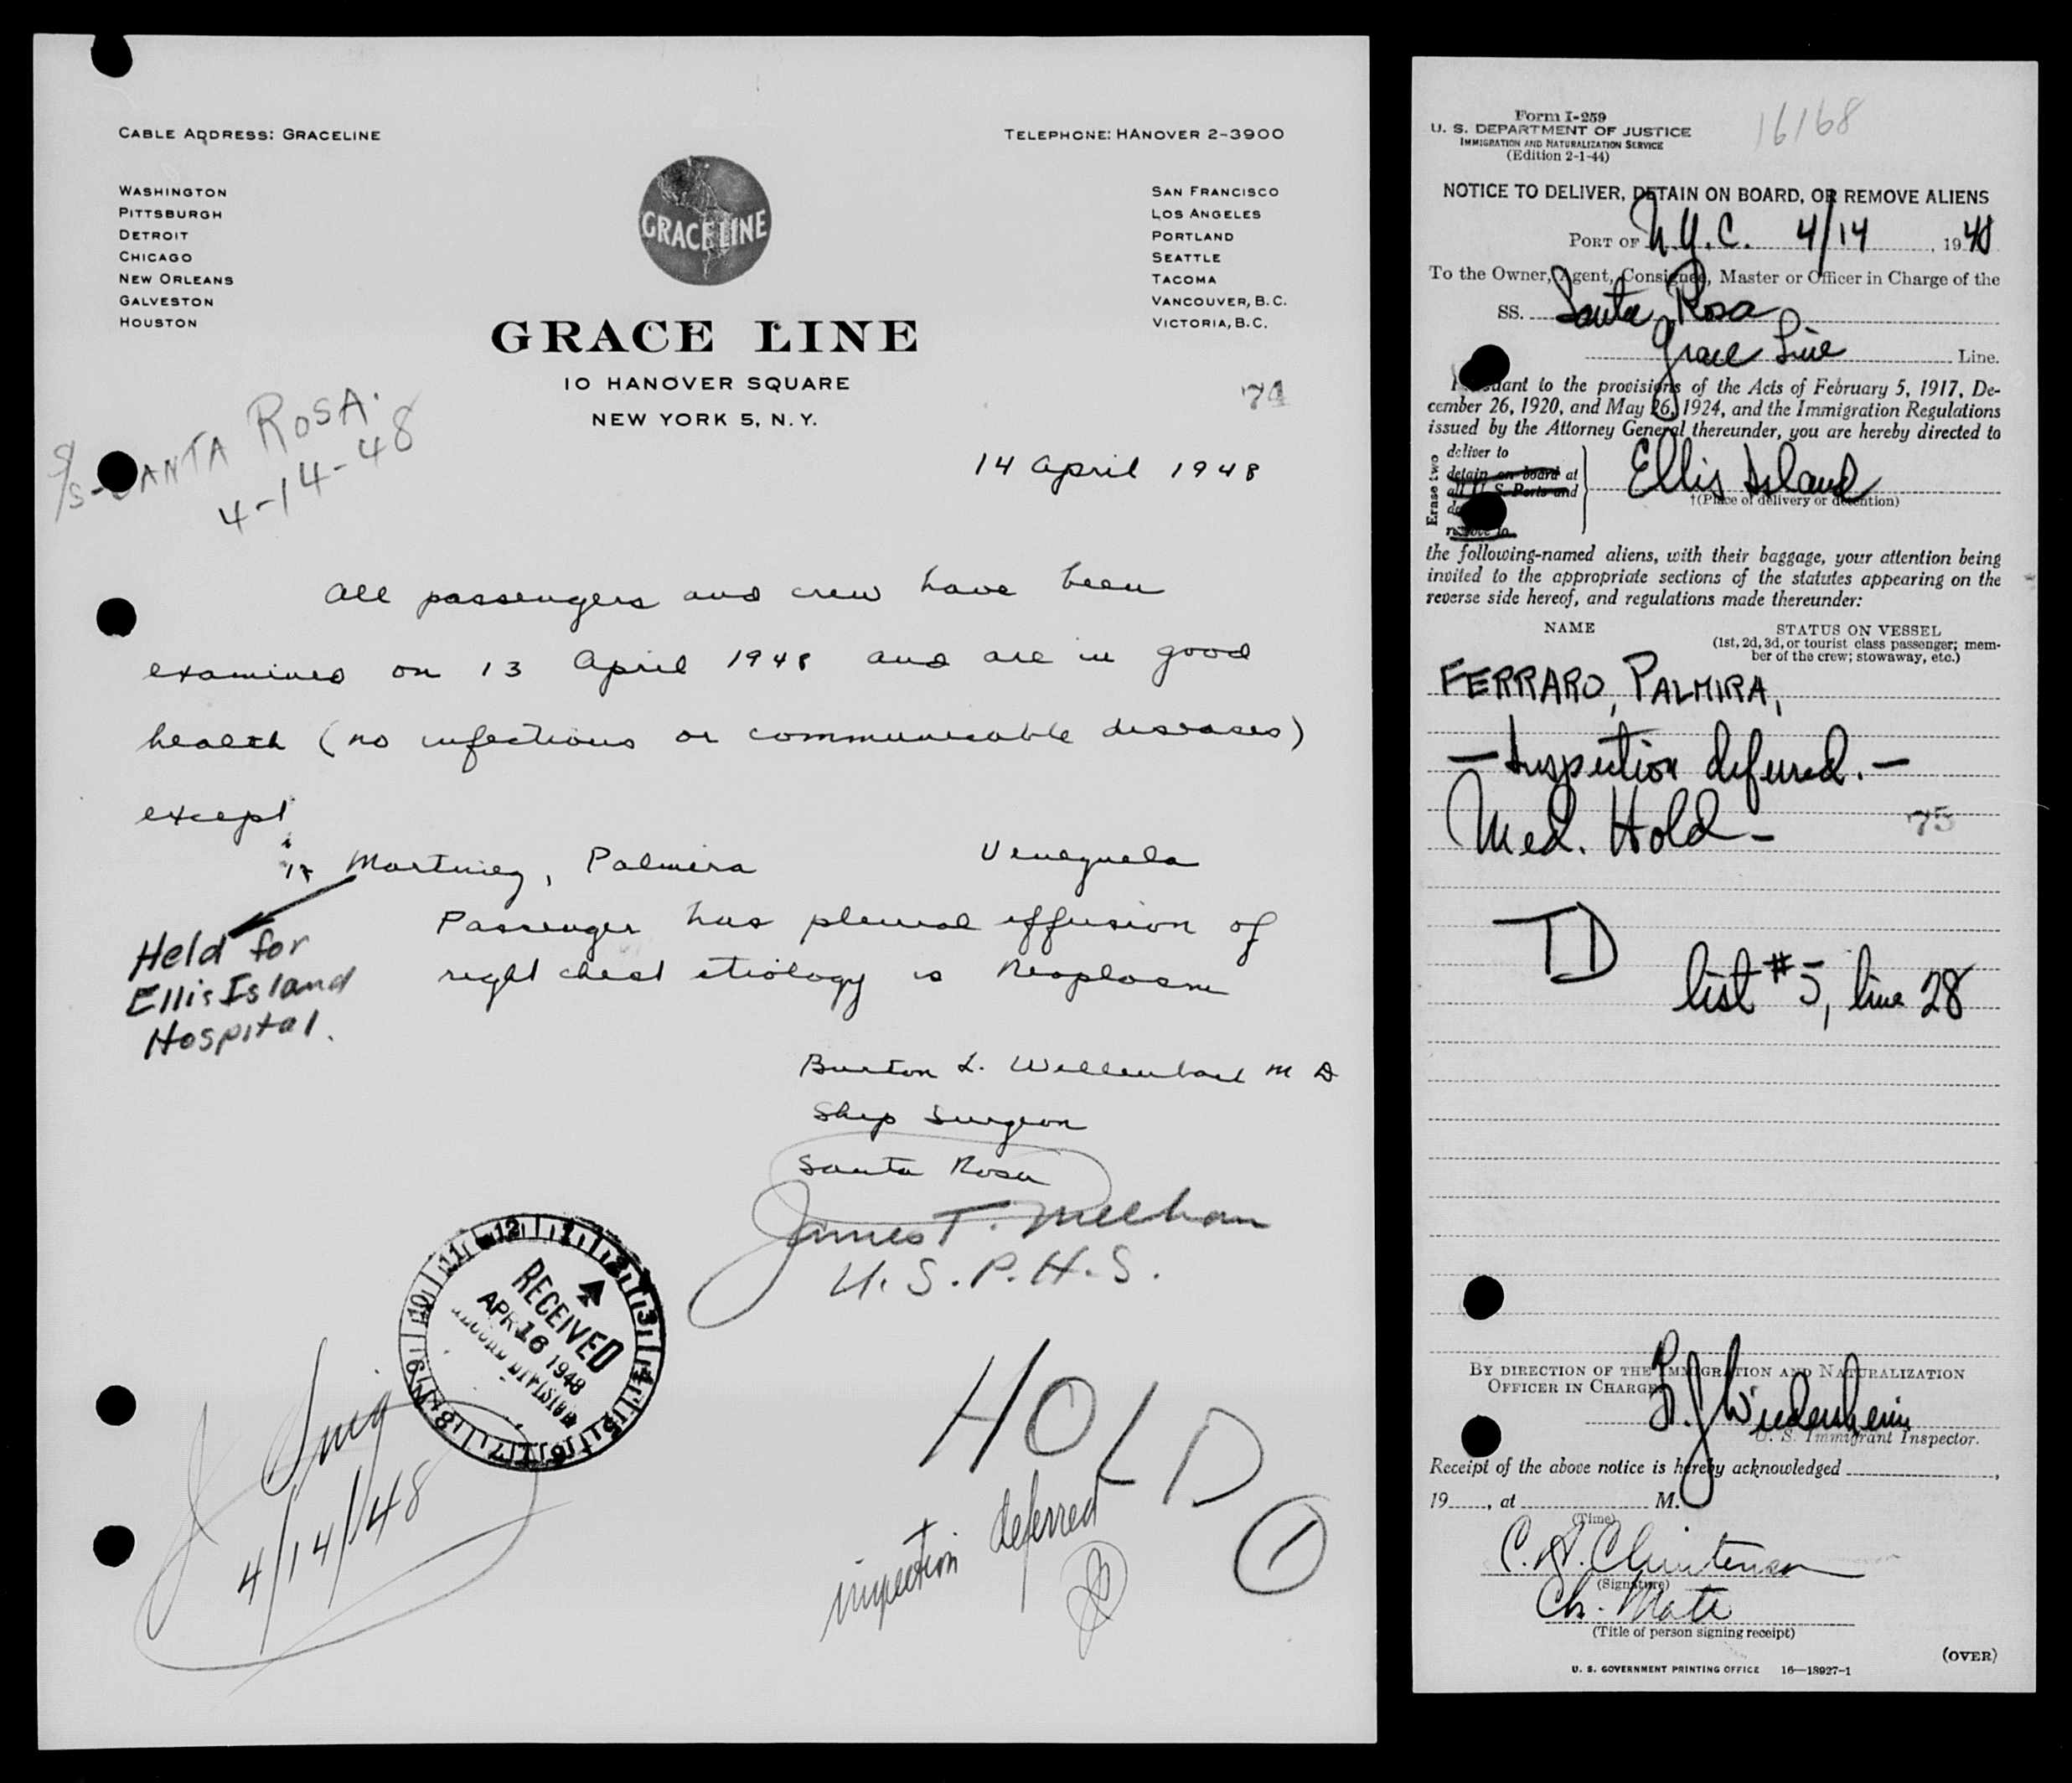 CABLE ADDRESS: GRACELINE
TELEPHONE: HANOVER 2-3900
WASHINGTON
PITTSBURGH
DETROIT
CHICAGO
NEW ORLEANS
GALVESTON
HOUSTON
GRACE LINE
SAN FRANCISCO
LOS ANGELES
PORTLAND
SEATTLE
TACOMA
VANCOUVER, B.C.
VICTORIA, B.C.
GRACE LINE
10 HANOVER SQUARE
NEW YORK 5, N.Y.
74
S/S-SANTA ROSA.
4-14-48
14 April 1948
All passengers and crew have been
examined on 13 April 1948 and are in good
health (no infectious or communicable diseases)
except
Martinez, Palmira Venezuela
Passenger has pleural effusion of
right chest etiology is Neoplasm
Held for
Ellis Island
Hospital.
Burton L. M D
Ship Surgeon
Santa Rosa
James T. Meehan
U.S.P.H.S.
12 1 2 3 4 5 6 7 8 9 10 11
RECEIVED
APR 16 1948
RECORD DIVISION
4/14/48
HOLD
inspection deferred
1
Form I-259
16168
U. S. DEPARTMENT OF JUSTICE
IMMIGRATION AND NATURALIZATION SERVICE
(Edition 2-1-44)
NOTICE TO DELIVER, DETAIN ON BOARD, OR REMOVE ALIENS
PORT OF N.Y.C. 4/14, 1948
To the Owner, Agent, Consignee, Master or Officer in Charge of the
SS. Santa Rosa
Grace Line Line.
Pursuant to the provisions of the Acts of February 5, 1917, De-
cember 26, 1920, and May 26, 1924, and the Immigration Regulations
issued by the Attorney General thereunder, you are hereby directed to
Erase two
deliver to
detain on board at
all U. S. Ports and
remove to
Ellis Island
†(Place of delivery or detention)
the following-named aliens, with their baggage, your attention being
invited to the appropriate sections of the statutes appearing on the
reverse side hereof, and regulations made thereunder:
NAME STATUS ON VESSEL
(1st, 2d, 3d, or tourist class passenger; mem-
ber of the crew; stowaway, etc.)
FERRARO, PALMIRA,
- Inspection deferred. -
Med. Hold -
75
TD
list #5, line 28
BY DIRECTION OF THE IMMIGRATION AND NATURALIZATION
OFFICER IN CHARGE
Wiedersheim
U. S. Immigrant Inspector.
Receipt of the above notice is hereby acknowledged,
19, at M.
(Time)
C. A. Christensen
(Signature)
Ch. Mate
(Title of person signing receipt)
(OVER)
U. S. GOVERNMENT PRINTING OFFICE 16—18927-1